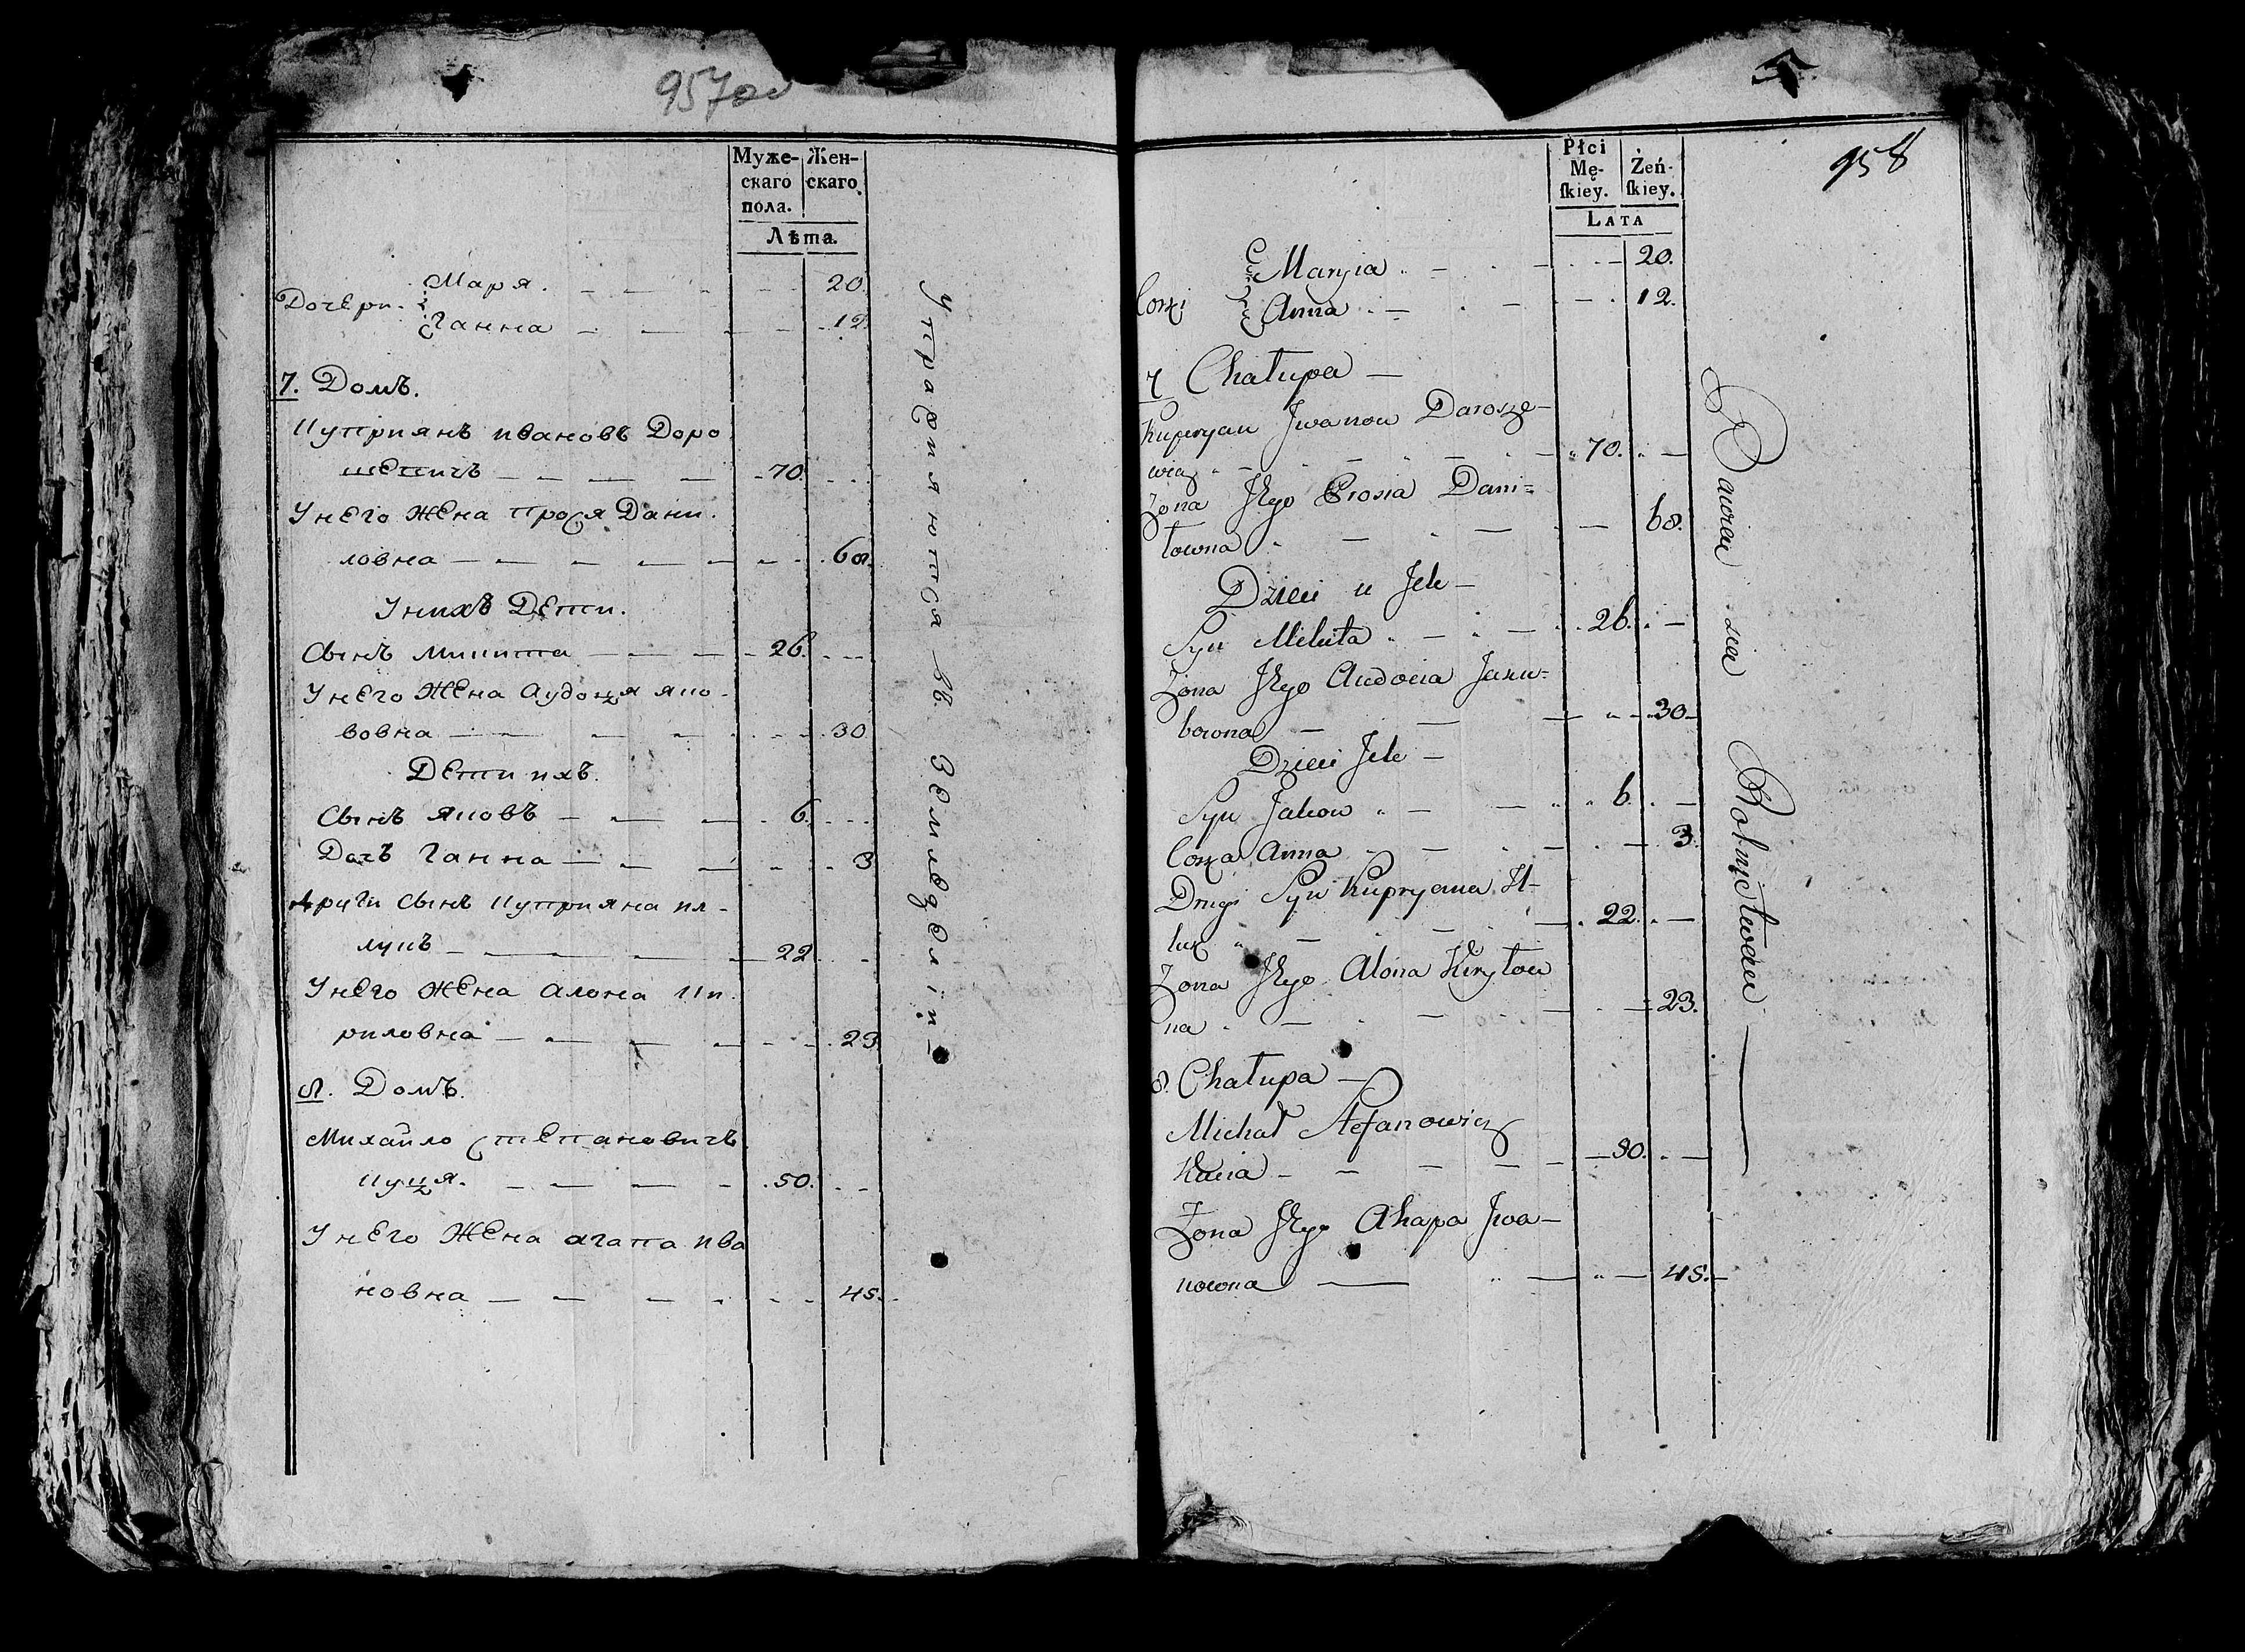 957об
Муже- Жен-
скаго скаго
пола.
Лѣта.
Маря. 20
Дочери
Ганна 12
7. Домъ.
Куприянъ ивановъ Доро
шевичъ 70
У него жена прося Дани.
ловна 68.
У нихъ Дети.
Сынъ микита 26.
У него жена Аудоця яко-
вовна 30
Дети ихъ.
Сынъ яковъ 6.
Дочъ Ганна 3
други сынъ куприяна ил-
лукъ 22
У него жена алона ки
риловна 23
8. Домъ.
Михайло степановичъ
куця. 50.
У него жена агапа ива
новна 45.
упрафняются въ земледелiи
958
Płci
Mę- Żeń-
ſkiey. ſkiey.
LATA
Maryia 20.
Corki
Anna 12.
7 Chałupa
Kupryan Jwanow Darosze-
wicz 70.
Zona Jego Prosia Dani-
łowna 68.
Dzieci u Jch
Syn Mikita 26.
Zona Jego Audocia Jaku-
bowna 30
Dzieci Jch
Syn Jakow 6.
Corka Anna 3.
Drugi Syn Kupryana Jl-
luk 22.
Zona Jego Alona Kiryłow
na 23.
8. Chałupa
Michał Stefanowicz
Kucia 50.
Zona Jego Ahapa Jwa-
nowna 45.
Bawią sie Rolnictwem